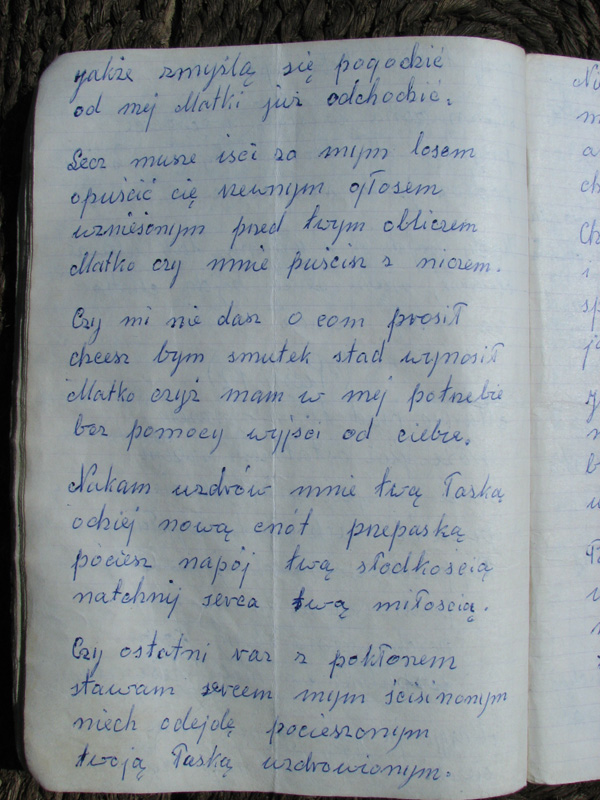 jakże z myślą się pogodzić
od mej Matki już odchodzić.
Lecz musze iść za mym losem
opuścić cię rzewnym głosem
wzniesionym przed twym obliczem
Matko czy mnie puścisz z niczem.
Czy mi nie dasz o com prosił
chcesz bym smutek stąd wynosił
Matko czyż mam w mej potrzebie
bez pomocy wyjści od ciebie.
uzdrów mnie twą łaską
odziej nową cnót przepaską
pociesz napój twą słodkością
natchnij serca twą miłością.
Czy ostatni raz z pokłonem
stawam sercem mym
niech odejdę pocieszonym
twoją łaską uzdrowionym.
Na
m
a
ch
Ch
i
sp